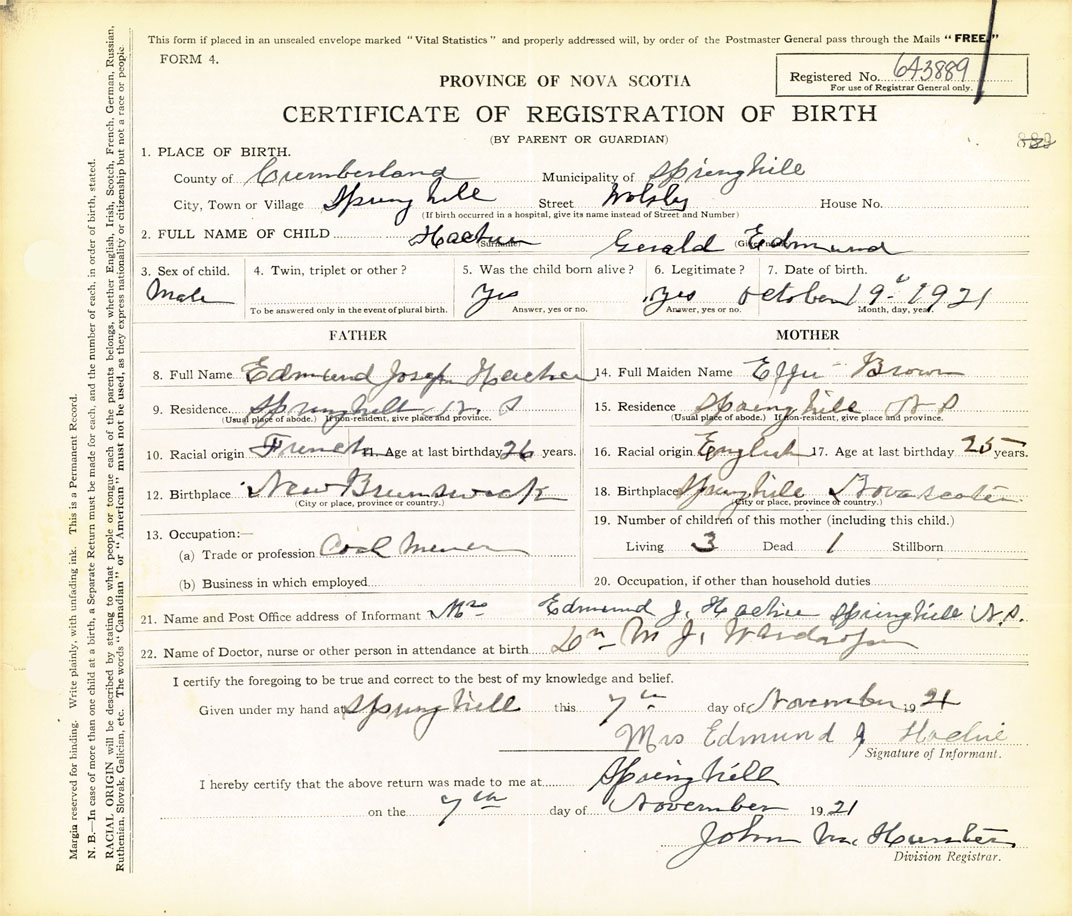 This form if placed in an unsealed envelope marked "Vital Statistics" and properly addressed will, by order of the Postmaster General pass through the Mails "FREE."
FORM 4.
Registered No. 643889
For use of Registrar General only.
PROVINCE OF NOVA SCOTIA
CERTIFICATE OF REGISTRATION OF BIRTH
(BY PARENT OR GUARDIAN)
1. PLACE OF BIRTH.
County of Cumberland Municipality of Springhill
City, Town or Village Spring hill Street House No.
(If birth occurred in a hospital, give its name instead of Street and Number)
2. FULL NAME OF CHILD Hachie Gerald Edmund
(Surname) (Given name)
3. Sex of child. 4. Twin, triplet or other? 5. Was the child born alive? 6. Legitimate? 7. Date of birth.
Male Yes Yes October 19th 1921
To be answered only in the event of plural birth. Answer, yes or no. Answer, yes or no. Month, day, year.
FATHER MOTHER
8. Full Name Edmund Joseph Hachie 14. Full Maiden Name Effie Brown
9. Residence Springhill N. S 15. Residence Spring hill N S
(Usual place of abode.) If non-resident, give place and province. (Usual place of abode.) If non-resident, give place and province.
10. Racial origin French 11. Age at last birthday 26 years. 16. Racial origin English 17. Age at last birthday 25 years.
12. Birthplace New Brunswick 18. Birthplace Springhill Nova scotia
(City or place, province or country.) (City or place, province or country.)
13. Occupation:— 19. Number of children of this mother (including this child.)
(a) Trade or profession Coal Miner Living 3 Dead 1 Stillborn
(b) Business in which employed 20. Occupation, if other than household duties
21. Name and Post Office address of Informant Mrs Edmund J. Hachie Springhill N.S.
22. Name of Doctor, nurse or other person in attendance at birth Dr M J. Wardrope
I certify the foregoing to be true and correct to the best of my knowledge and belief.
Given under my hand at Spring hill this 7th day of November 1921
Mrs Edmund J Hachie
Signature of Informant.
I hereby certify that the above return was made to me at Spring hill
on the 7th day of November 1921
John Mc
Division Registrar.
Margin reserved for binding. Write plainly, with unfading ink. This is a Permanent Record.
N. B.—In case of more than one child at a birth, a Separate Return must be made for each, and the number of each, in order of birth, stated.
RACIAL ORIGIN will be described by stating to what people or tongue each of the parents belongs, whether English, Irish, Scotch, French, German, Russian,
Ruthenian, Slovak, Galician, etc. The words "Canadian" or "American" must not be used, as they express nationality or citizenship but not a race or people